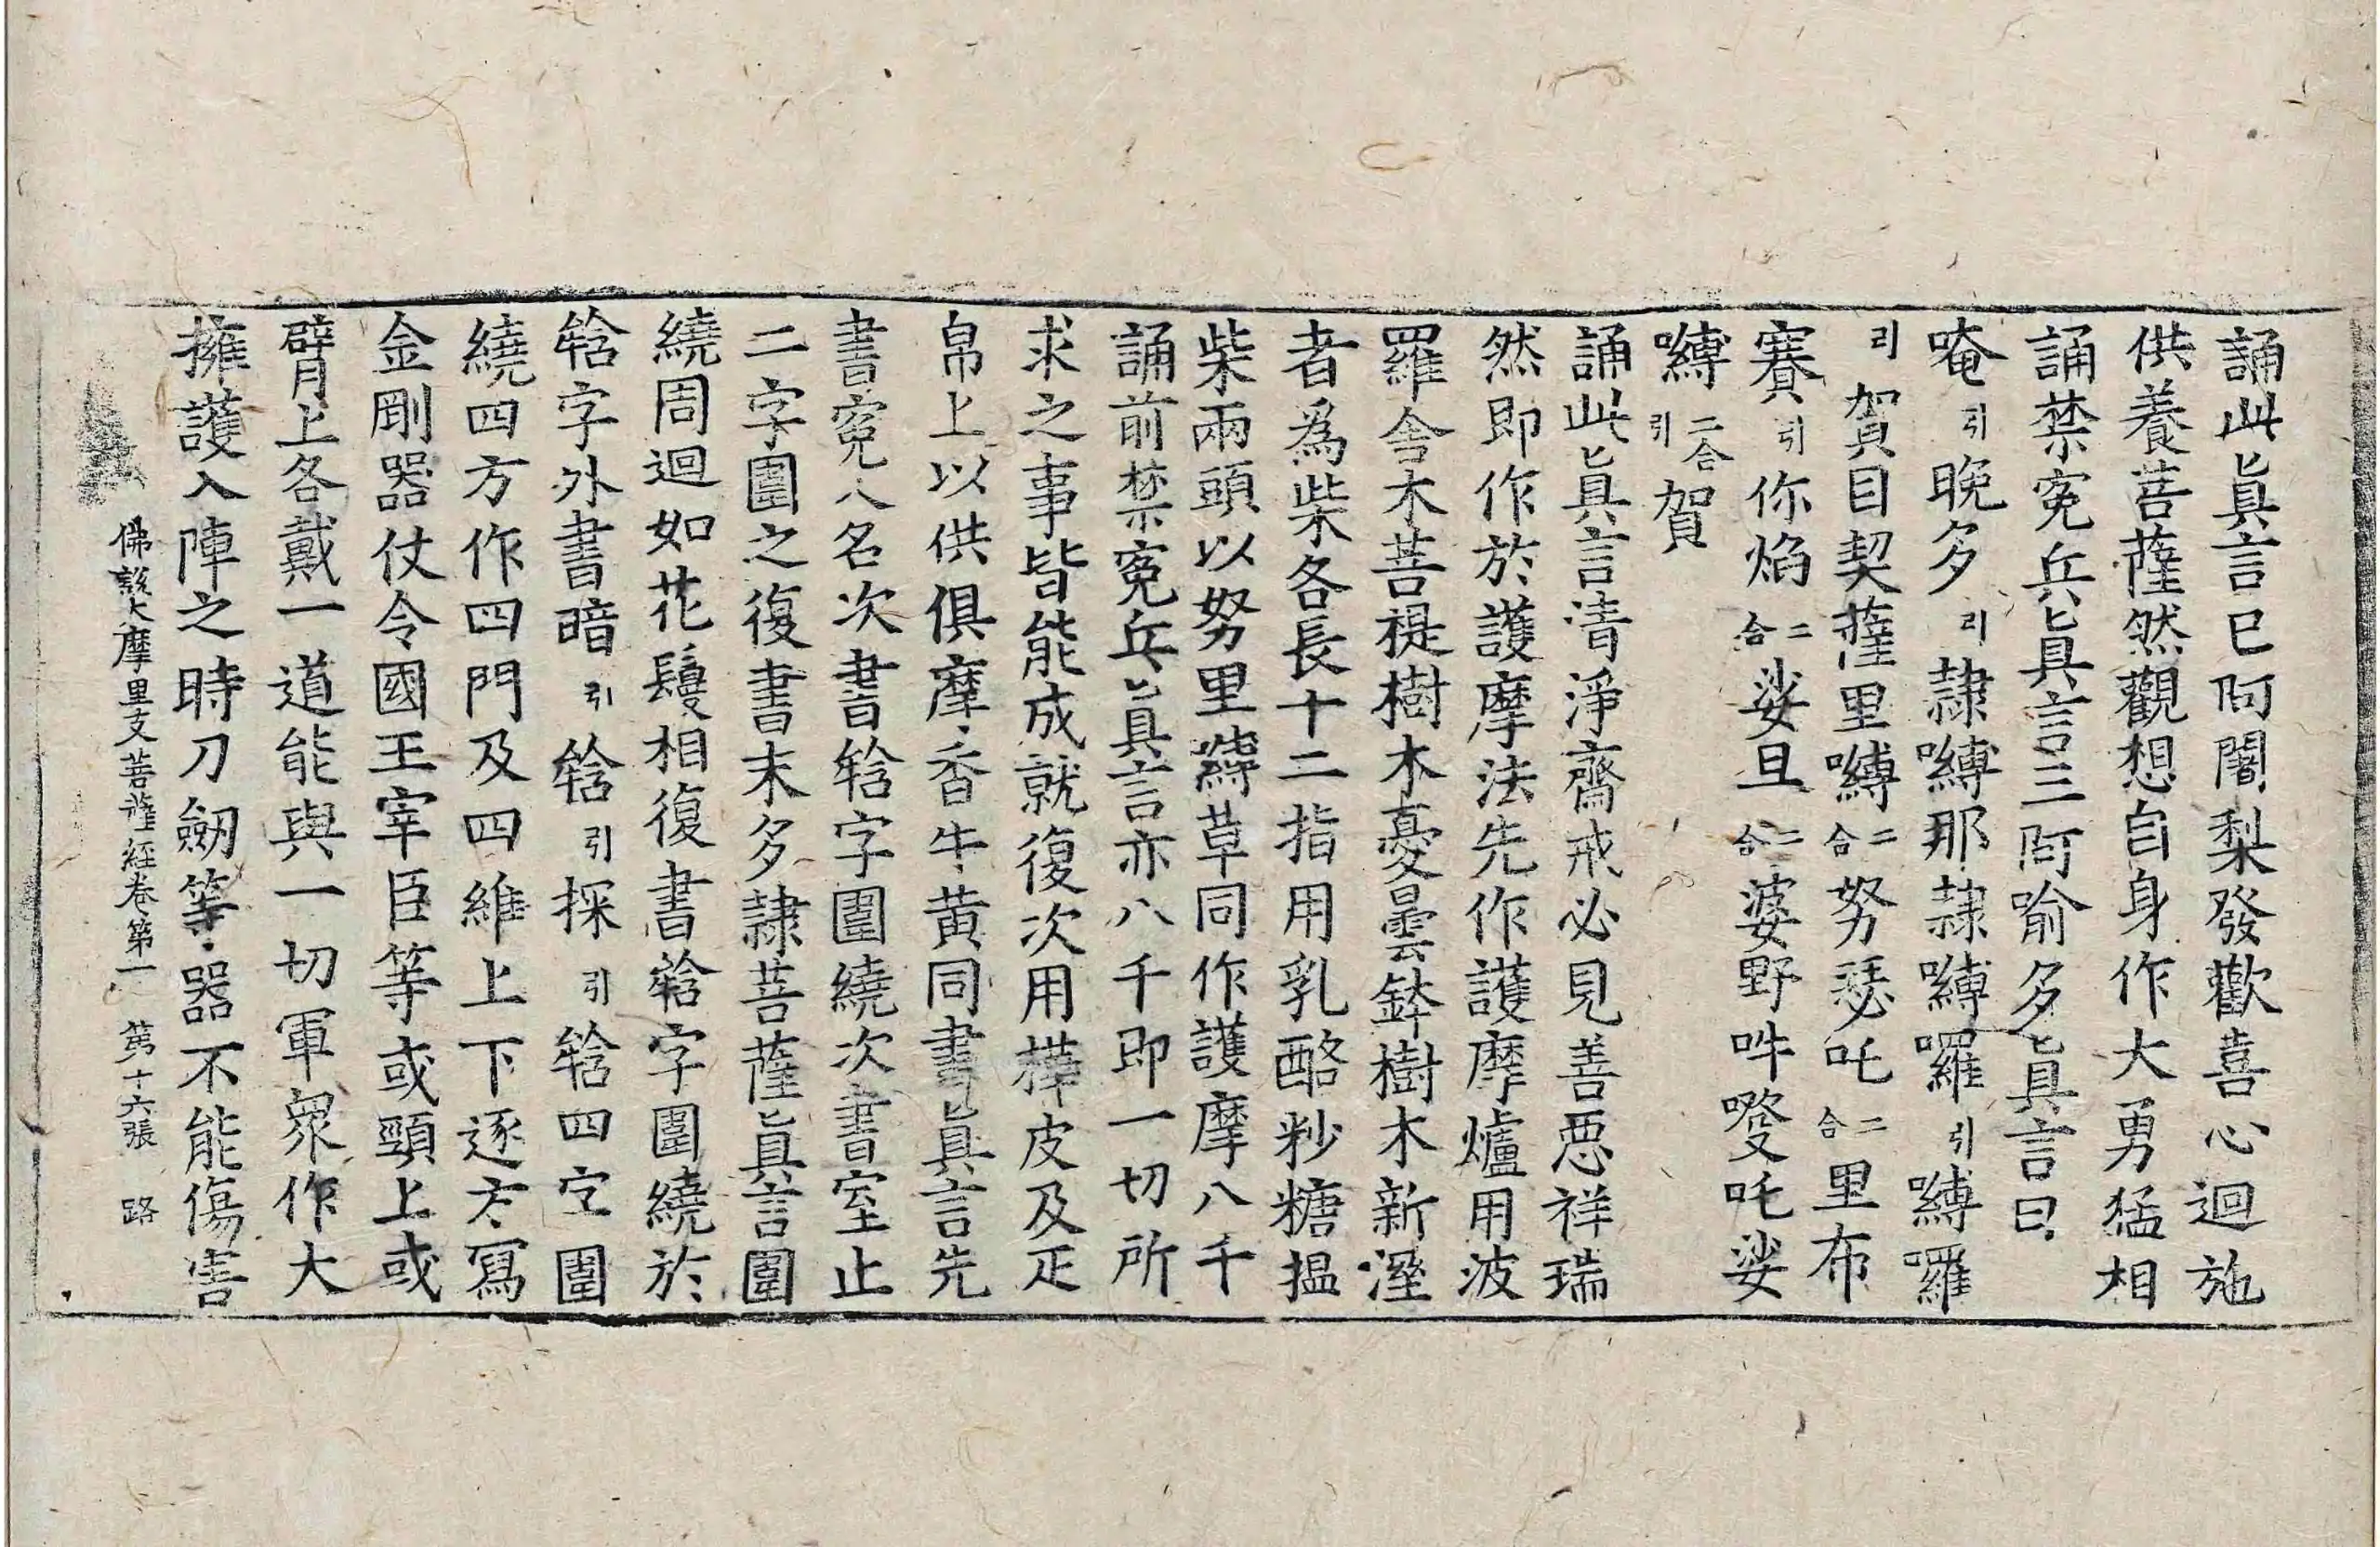 誦此眞言已阿闍梨發歡喜心迴施
供養菩薩然觀想自身作大勇猛相
誦禁寃兵眞言三阿喻多眞言曰
唵引晚多引隷嚩那隷嚩囉引嚩囉
引賀目契薩里嚩二合努瑟吒二合里布
賽引你焰二合娑旦二合婆野吽發吒娑
嚩二合引賀
誦此眞言清淨齋戒必見善惡祥瑞
然即作於護摩法先作護摩爐用波
羅舎木菩提樹木憂曇鉢樹木新溼
者爲柴各長十二指用乳酪粆糖搵
柴兩頭以努里嚩草同作護摩八千
誦前禁寃兵眞言亦八千即一切所
求之事皆能成就復次用樺皮及疋
帛上以供俱摩香牛黄同書眞言先
書寃人名次書㘕字圍繞次書室止
二字圍之復書末多隷菩薩眞言圍
繞周迴如花鬘相復書㘕字圍繞於
㘕字外書暗引㘕引採引㘕四字圍
繞四方作四門及四維上下逐方寫
金剛器仗令國王宰臣等或頸上或
臂上各戴一道能與一切軍衆作大
擁護入陣之時刀劒等器不能傷害
佛說大摩里支菩薩經卷第一 第十六張 路